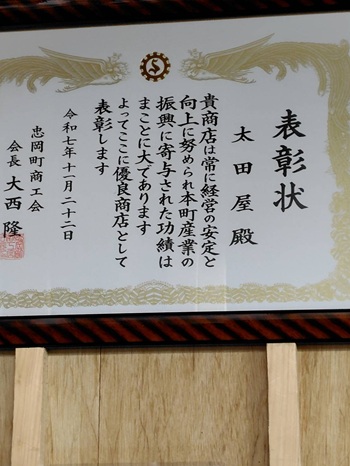 表彰状
太田屋殿
貴商店は常に経営の安定と
向上に努められ本町産業の
振興に寄与された功績は
まことに大であります
よってここに優良商店として
表彰します
令和七年十一月二十二日
忠岡町商工会
会長 大西 隆